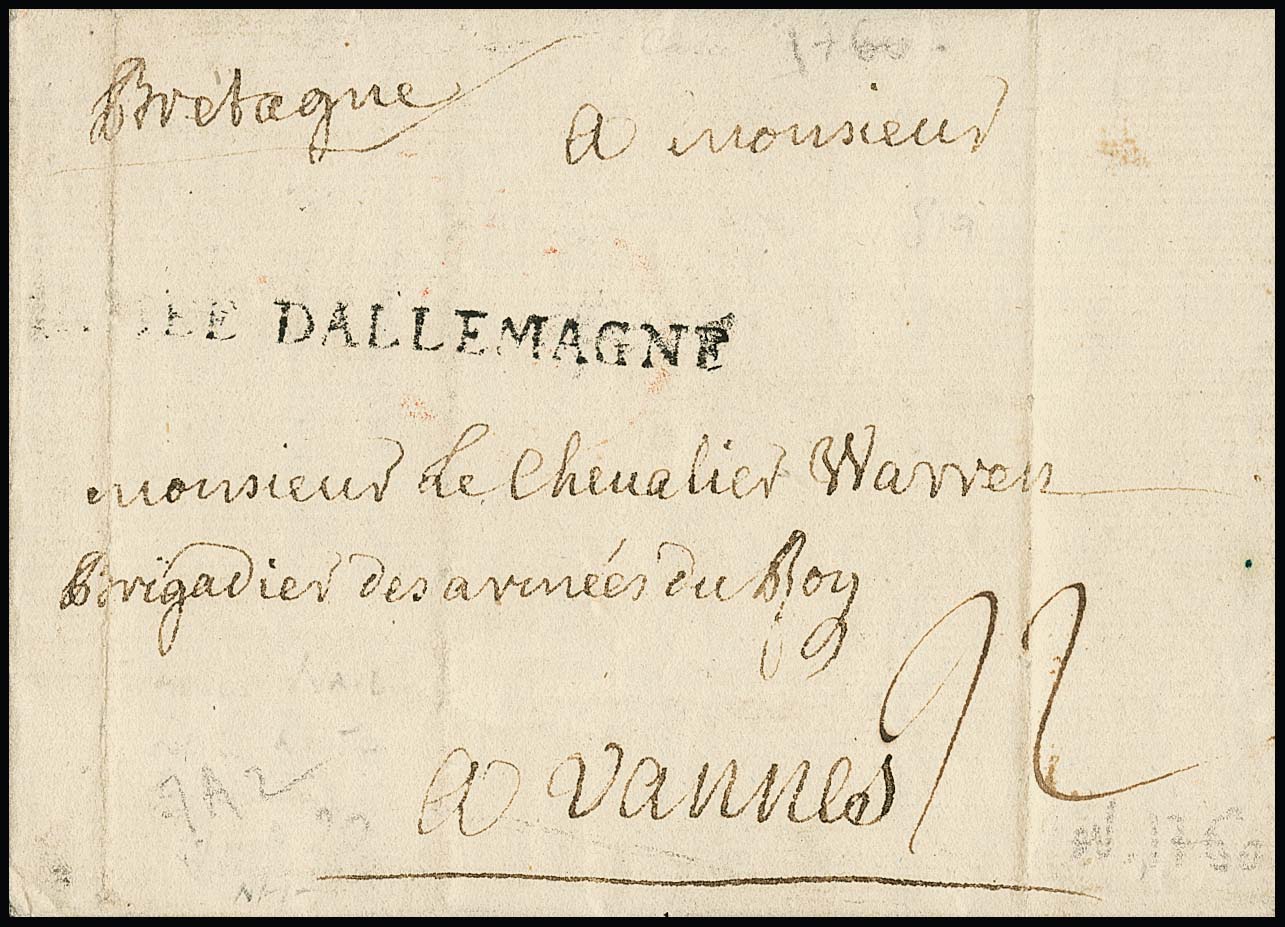 1760.
Bretagne
A monsieur
ÉE DALLEMAGNE
monsieur Le Chevalier Warren
Brigadier des armées du Roy
22
a vannes
7A2
1760